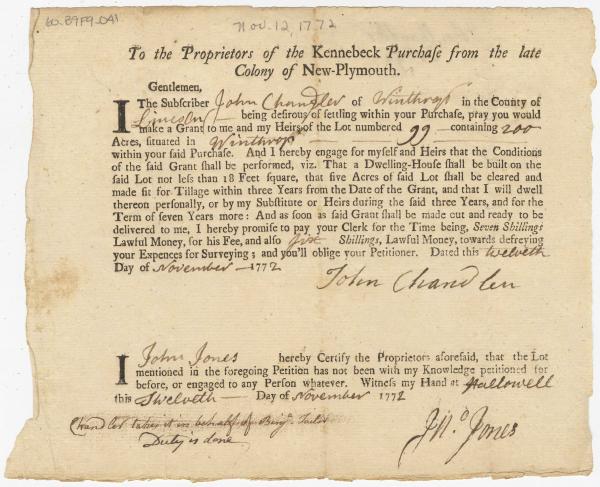 60.B9F9.041
Nov. 12, 1772
To the Proprietors of the Kennebeck Purchaſe from the late
Colony of New-Plymouth.
Gentlemen,
I The Subſcriber John Chandler of Winthrop in the County of
Lincoln being deſirous of ſettling within your Purchaſe, pray you would
make a Grant to me and my Heirs of the Lot numbered 99 containing 200
Acres, situated in Winthrop
within your said Purchaſe. And I hereby engage for myſelf and Heirs that the Conditions
of the ſaid Grant ſhall be performed, viz. That a Dwelling-Houſe ſhall be built on the
ſaid Lot not leſs than 18 Feet ſquare, that five Acres of ſaid Lot ſhall be cleared and
made fit for Tillage within three Years from the Date of the Grant, and that I will dwell
thereon perſonally, or by my Subſtitute or Heirs during the ſaid three Years, and for the
Term of ſeven Years more: And as ſoon as ſaid Grant ſhall be made out and ready to be
delivered to me, I hereby promiſe to pay your Clerk for the Time being, Seven Shillings
Lawful Money, for his Fee, and alſo ſix Shillings, Lawful Money, towards defreying
your Expences for Surveying; and you'll oblige your Petitioner. Dated this twelveth
Day of November 1772
John Chandler
I John Jones hereby Certify the Proprietors aforeſaid, that the Lot
mentioned in the foregoing Petition has not been with my Knowledge petitioned for
before, or engaged to any Perſon whatever. Witneſs my Hand at Hallowell
this Twelveth Day of November 1772
Chandler takes it in behalf of Benj.
Duty is done
Jnº Jones